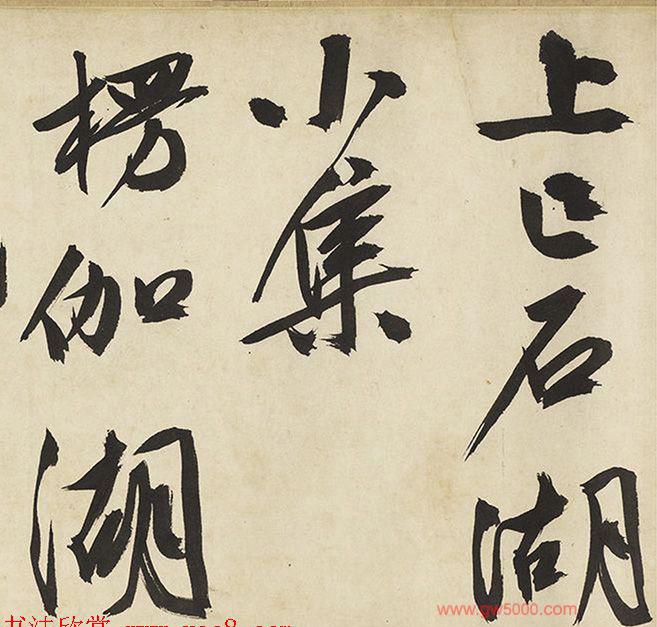 上巳石湖
小集
楞伽湖
www.gw5000.com
书法欣赏